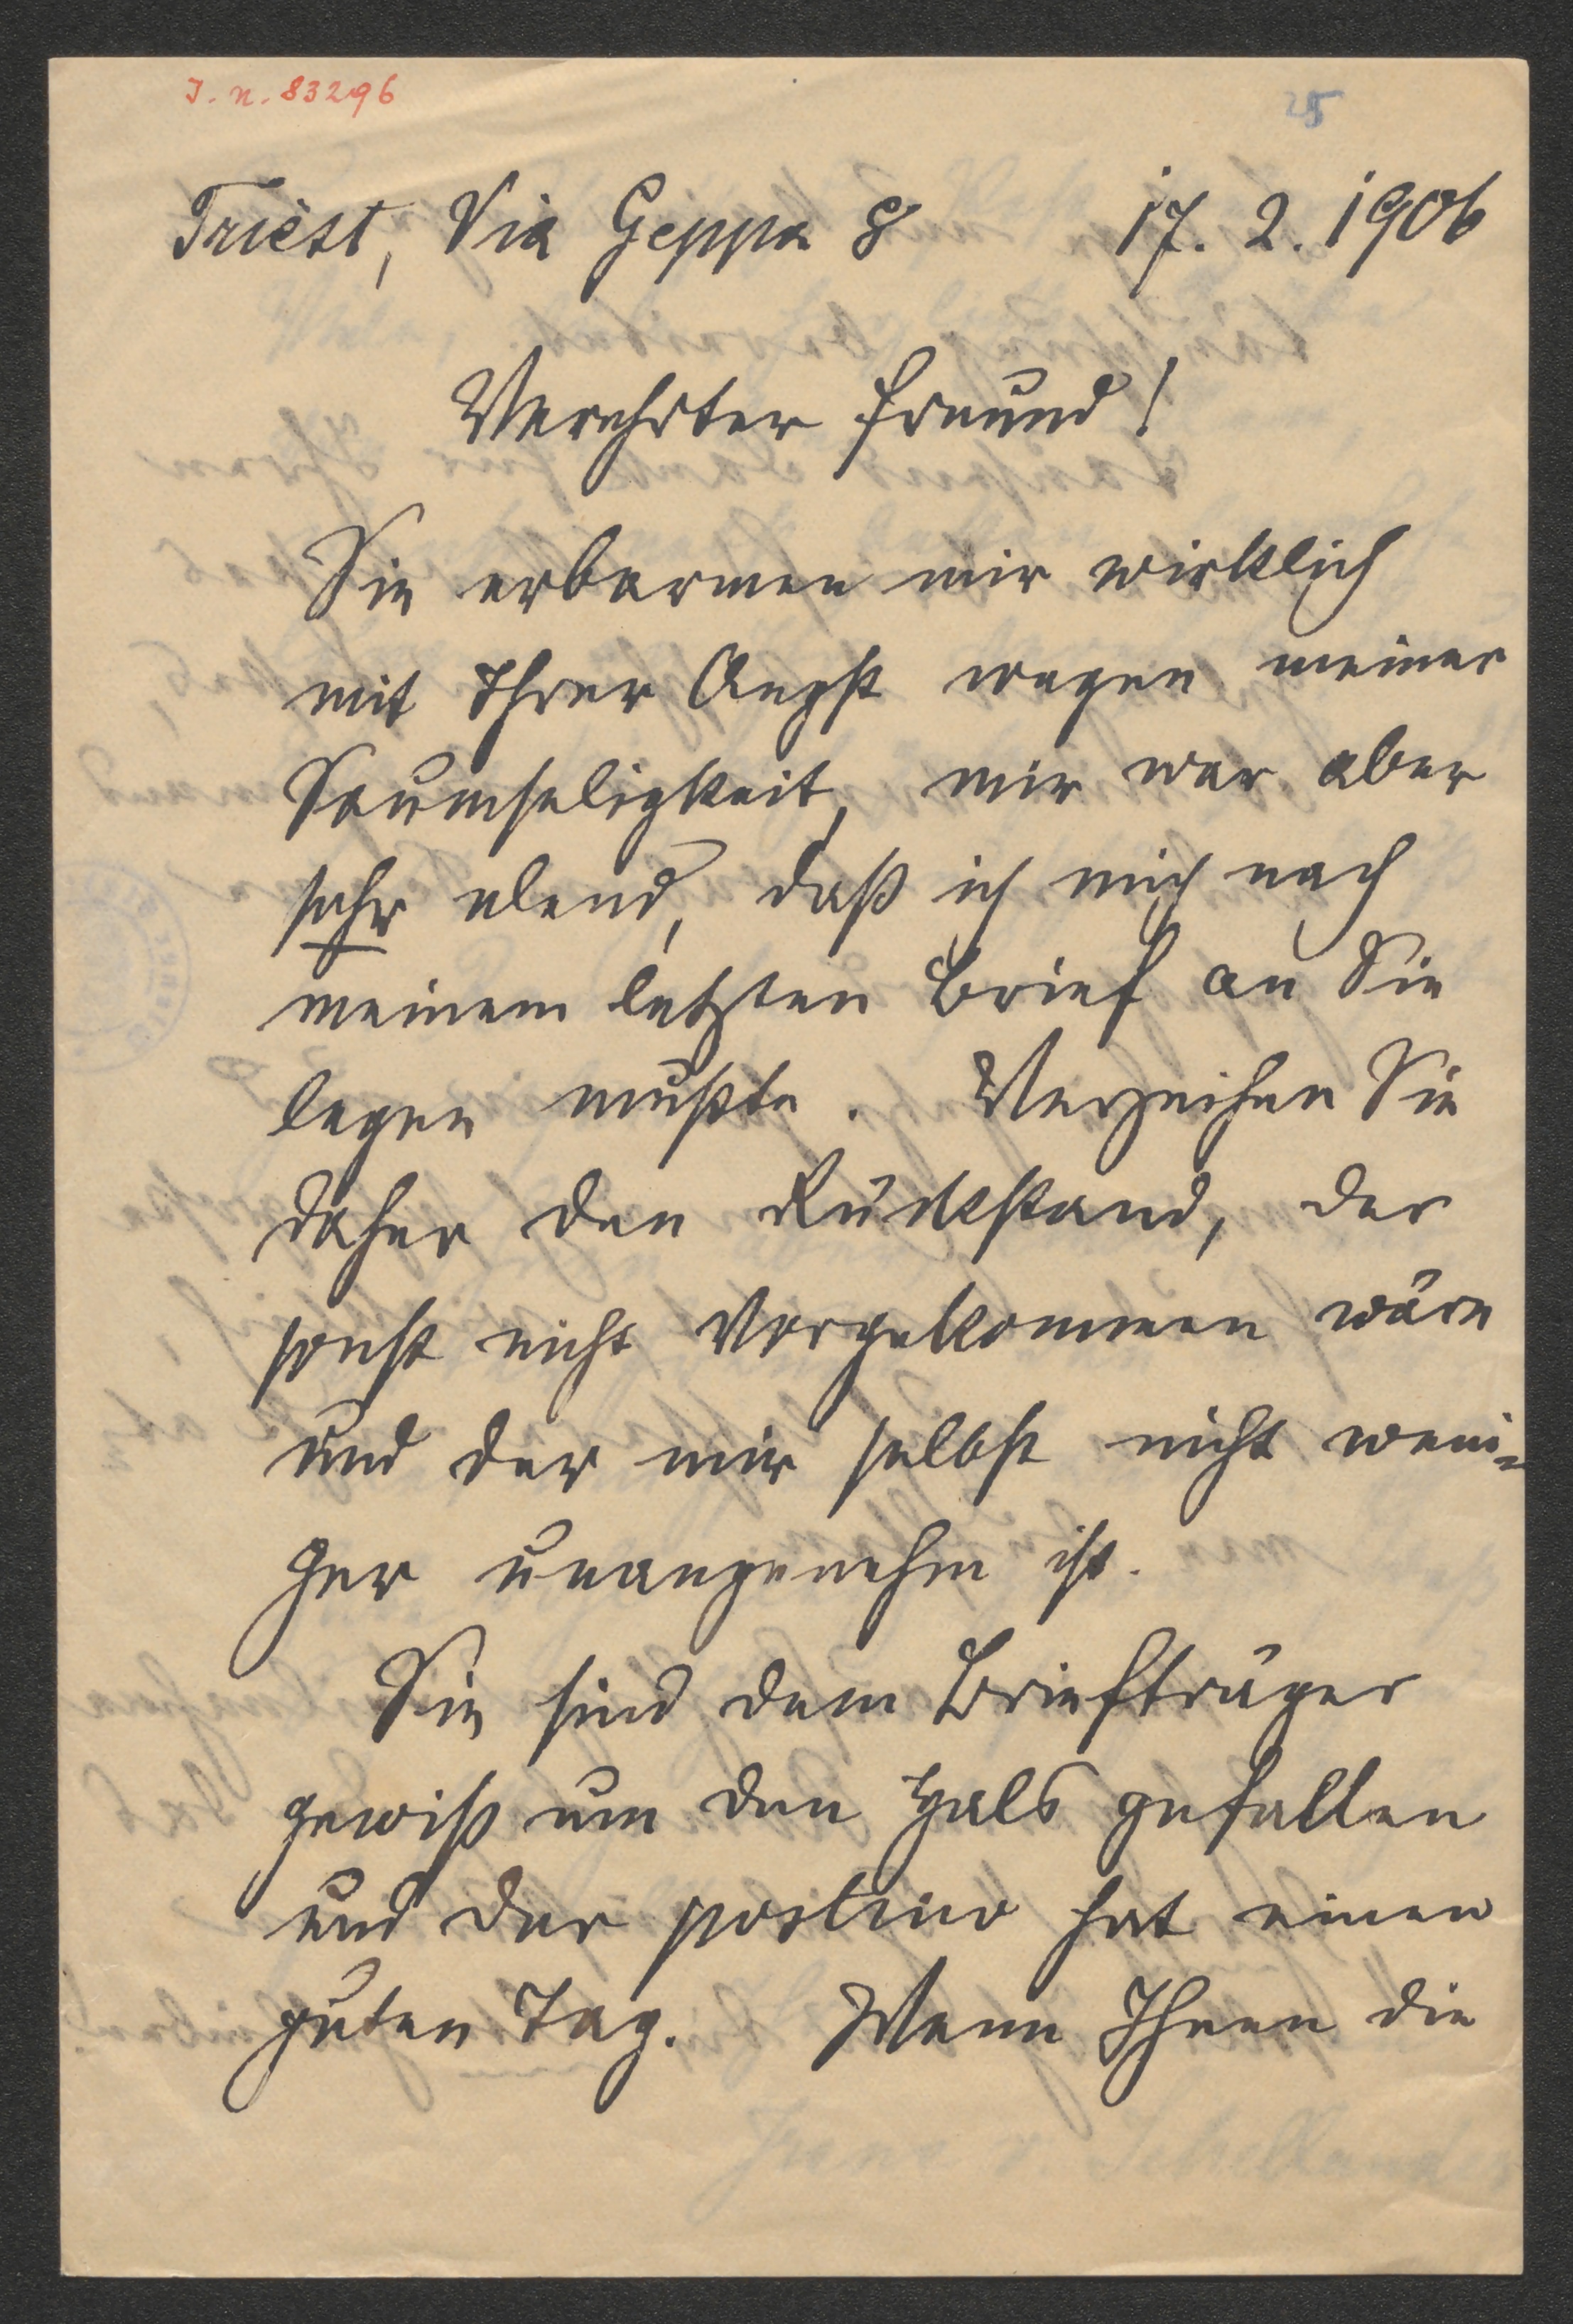 I. N. 83296
25
Triest, Via Geppa 8 17. 2. 1906
Verehrter Freund!
Sie erbarmen mir wirklich
mit Ihrer Angst wegen meiner
Saumseligkeit, mir war aber
sehr elend, daß ich mich nach
meinem letzten Brief an Sie
legen mußte. Verzeihen Sie
daher den Rückstand, der
sonst nicht vorgekommen wäre
und der mir selbst nicht weni=
ger unangenehm ist.
Sie sind dem Briefträger
gewiß um den Hals gefallen
und der postino hat einen
guten Tag. Wenn Ihnen die